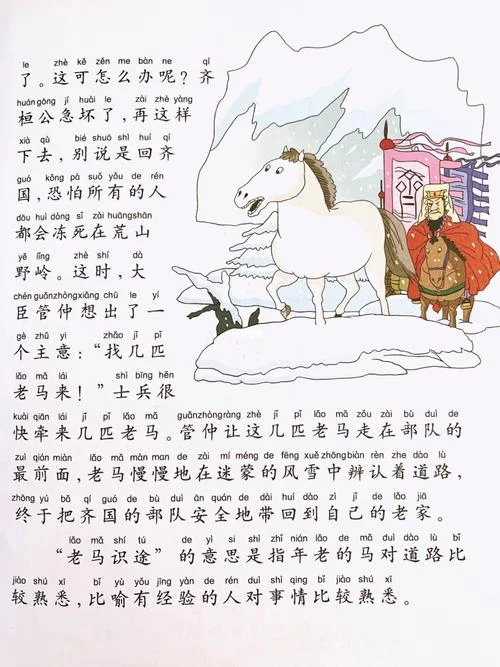 le zhè kě zěn me bàn ne qí
了。这可怎么办呢？齐
huán gōng jí huài le zài zhè yàng
桓公急坏了，再这样
xià qù bié shuō shì huí qí
下去，别说是回齐
guó kǒng pà suǒ yǒu de rén
国，恐怕所有的人
dōu huì dòng sǐ zài huāng shān
都会冻死在荒山
yě lǐng zhè shí dà
野岭。这时，大
chén guǎn zhòng xiǎng chū le yí
臣管仲想出了一
gè zhǔ yi zhǎo jǐ pǐ
个主意：“找几匹
lǎo mǎ lái shì bīng hěn
老马来！”士兵很
kuài qiān lái jǐ pǐ lǎo mǎ guǎn zhòng ràng zhè jǐ pǐ lǎo mǎ zǒu zài bù duì de
快牵来几匹老马。管仲让这几匹老马走在部队的
zuì qián miàn lǎo mǎ màn man de zài mí méng de fēng xuě zhōng biàn rèn zhe dào lù
最前面，老马慢慢地在迷蒙的风雪中辨认着道路，
zhōng yú bǎ qí guó de bù duì ān quán de dài huí dào zì jǐ de lǎo jiā
终于把齐国的部队安全地带回到自己的老家。
lǎo mǎ shí tú de yì si shì zhǐ nián lǎo de mǎ duì dào lù bǐ
“老马识途”的意思是指年老的马对道路比
jiào shú xī bǐ yù yǒu jīng yàn de rén duì shì qing bǐ jiào shú xī
较熟悉，比喻有经验的人对事情比较熟悉。